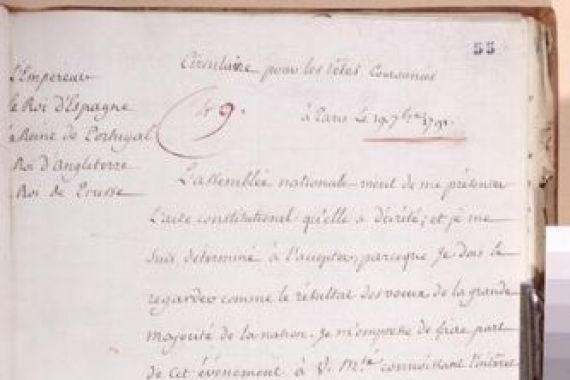 55
Circulaire pour les têtes Couronnées
L'Empereur
le Roi d'Espagne
a Reine de Portugal
Roi d'Angleterre
Roi de Prusse
9.
à Paris Le 19 7bre 1791.
L'assemblée nationale vient de me présenter
L'acte constitutionel qu'elle a décrété; et je me
suis déterminé à l'accepter, parceque Je dois le
regarder comme le résultat des voeux de la grande
majorité de la nation. Je m'empresse de faire part
de cet événement à V. Mté connoissant l'intéret